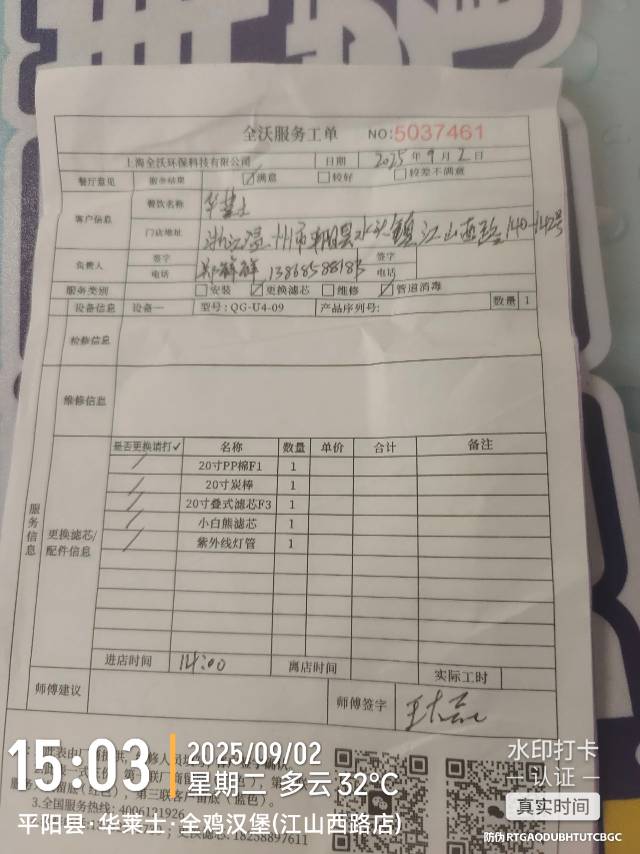 全沃服务工单 NO:5037461
上海全沃环保科技有限公司 日期 2025年9月2日
餐厅意见 服务结果 ☑满意 □较好 □较差不满意
客户信息 餐饮名称 华莱士
门店地址 浙江温州市平阳县水头镇江山西路140-142号
负责人 签字 签字
电话 电话
服务类别 □安装 ☑更换滤芯 □维修 ☑管道消毒
设备信息 设备一 型号:QG-U4-09 产品序列号: 数量 1
检修信息
维修信息
服务信息
更换滤芯/配件信息
是否更换请打✓ 名称 数量 单价 合计 备注
20寸PP棉F1 1
20寸炭棒 1
20寸叠式滤芯F3 1
小白熊滤芯 1
紫外线灯管 1
进店时间 14:00 离店时间 实际工时
师傅建议 师傅签字
3.全国服务热线: 4006131926
18258897611
15:03 2025/09/02
星期二 多云 32℃
平阳县·华莱士·全鸡汉堡(江山西路店)
水印打卡
认证
真实时间
防伪RTGAODUBHTUTCBGC